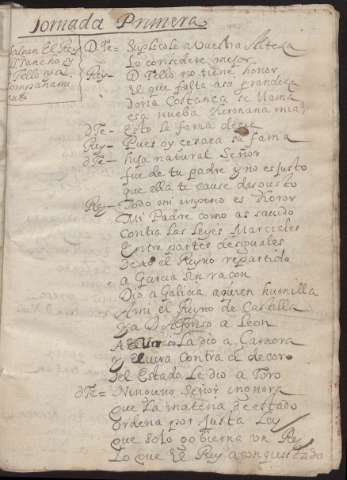 Jornada Primera
Salgan El Rey
D. Sancho y
Tello y a
compañami
ento
D Te= Suplicole a Vuestra Alteza
Lo considere mejor
Rey= D Tello no tiene honor
el que falta a su grandeza
Doña Costança se llama
esa nueba hermana mia
dTe= Esto la fama decia
Rey= Pues oy cesara la fama
dTe= hija natural Señor
fue de tu padre y no es justo
que ella te cause disgusto
Rey= Todo mi imperio es honor
Mi Padre como as sauido
Contra las Leyes Marciales
Entre partes desiguales
dexo el Reyno repartido
a Garcia sin raçon
Dio a Galicia a quien humilla
A mi el Reyno de Castilla
y a D Alfonso a Leon
A la dio a Çamora
y Eluira contra el decoro
del Estado le dio a Toro
dTe= Ninguno Señor ignora
que La materia de estado
Ordena por Justa Ley
que solo gobierna un Rey
Lo que El Rey a conquistado